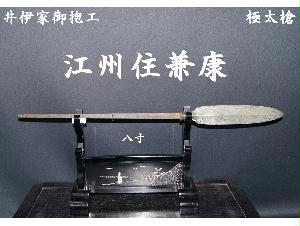 井伊家御抱工
極太槍
江州住兼康
八寸